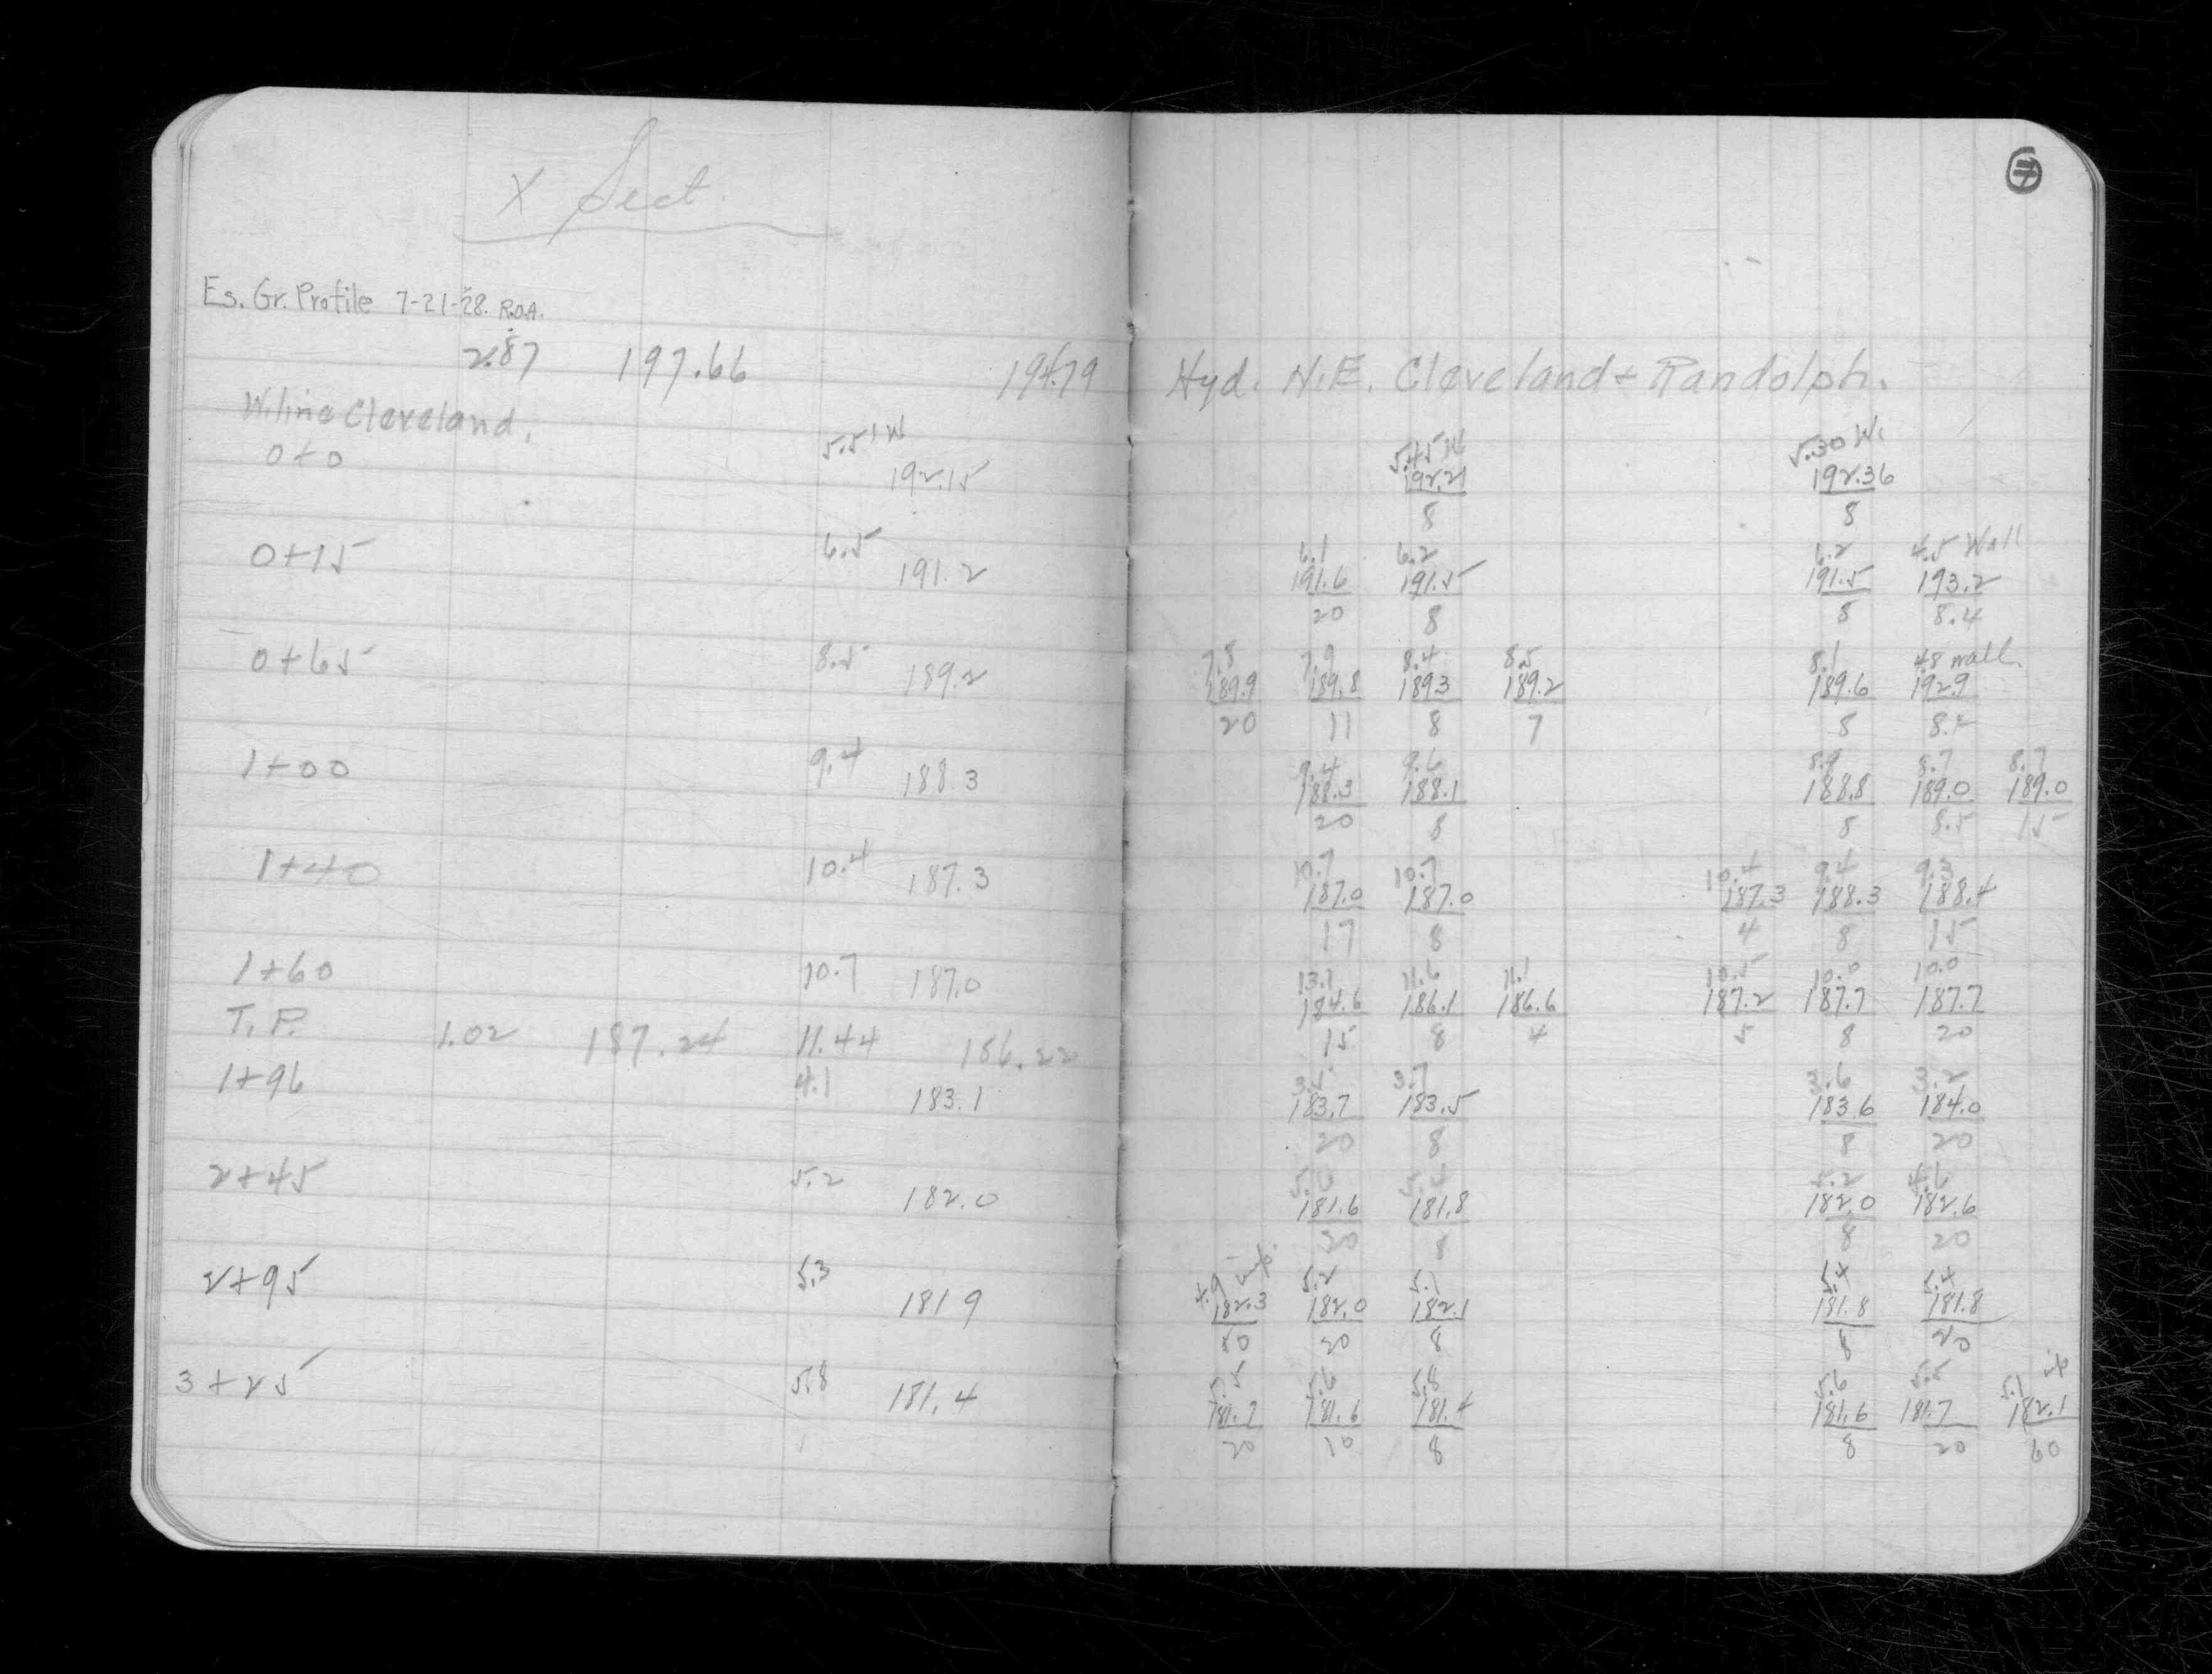 X Sect.
Es. Gr. Profile 7-21-28. R.O.A.
2.87 197.66 194.79 Hyd. N.E. Cleveland + Randolph.
W. line Cleveland.
5.51 W 5.45 W 5.30 W.
0+0 192.15 192.21 192.36
8 8
0+15 6.5 6.1 6.2 6.2 4.5 Wall
191.2 191.6 191.5 191.5 193.2
20 8 8 8.4
0+65 8.5 7.8 7.9 8.4 8.5 8.1 4.8 wall.
189.2 189.9 189.8 189.3 189.2 189.6 192.9
20 11 8 7 8 8.2
1+00 9.4 9.4 9.6 8.9 8.7 8.7
188.3 188.3 188.1 188.8 189.0 189.0
20 8 8 8.5 15
1+40 10.4 10.7 10.7 10.4 9.4 9.3
187.3 187.0 187.0 187.3 188.3 188.4
17 8 4 8 15
1+60 10.7 13.1 11.6 11.1 10.5 10.0 10.0
187.0 184.6 186.1 186.6 187.2 187.7 187.7
15 8 4 5 8 20
T.P. 1.02 187.24 11.44 186.22
1+96 4.1 3.7 3.6 3.2
183.1 183.7 183.5 183.6 184.0
20 8 8 20
2+45 5.2 5.6 5.4 5.2 4.6
182.0 181.6 181.8 182.0 182.6
20 8 8 20
2+95 5.3 4.9 5.2 5.1 5.4 5.4
181.9 182.3 182.0 182.1 181.8 181.8
20 8 8 20
3+25 5.8 5.5 5.6 5.8 5.6 5.5 5.1
181.4 181.7 181.6 181.4 181.6 181.7 182.1
20 10 8 8 20 60